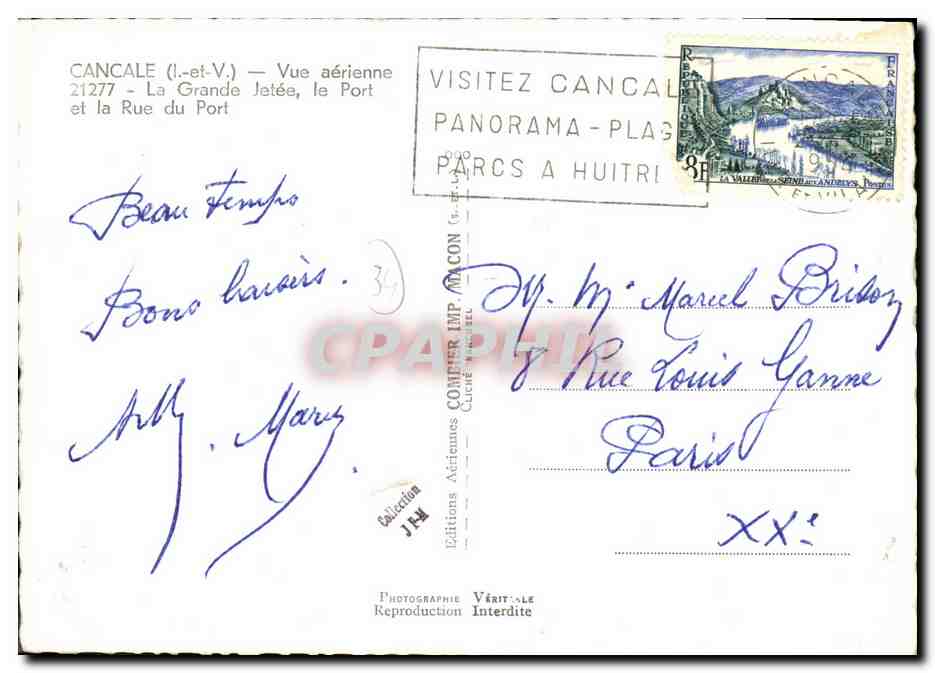 CANCALE (I.-et-V.) — Vue aérienne
21277 - La Grande Jetée, le Port
et la Rue du Port
VISITEZ CANCAL
PANORMA - PLAG
PARCS A HUITRE
REPUBLIQUE
FRANCAISE
8F
LA VALLEE DE LA SEINE AUX ANDELYS
POSTES
Beau temps
Bons baisers.
34
Mary.
M. Me Marcel Brison
8 Rue Louis Ganne
Paris
XXe
Editions Aériennes COMBIER IMP. MACON (S.-et-L.)
CPAPHIL
Collection
J F-M
PHOTOGRAPHIE VÉRITABLE
Reproduction Interdite